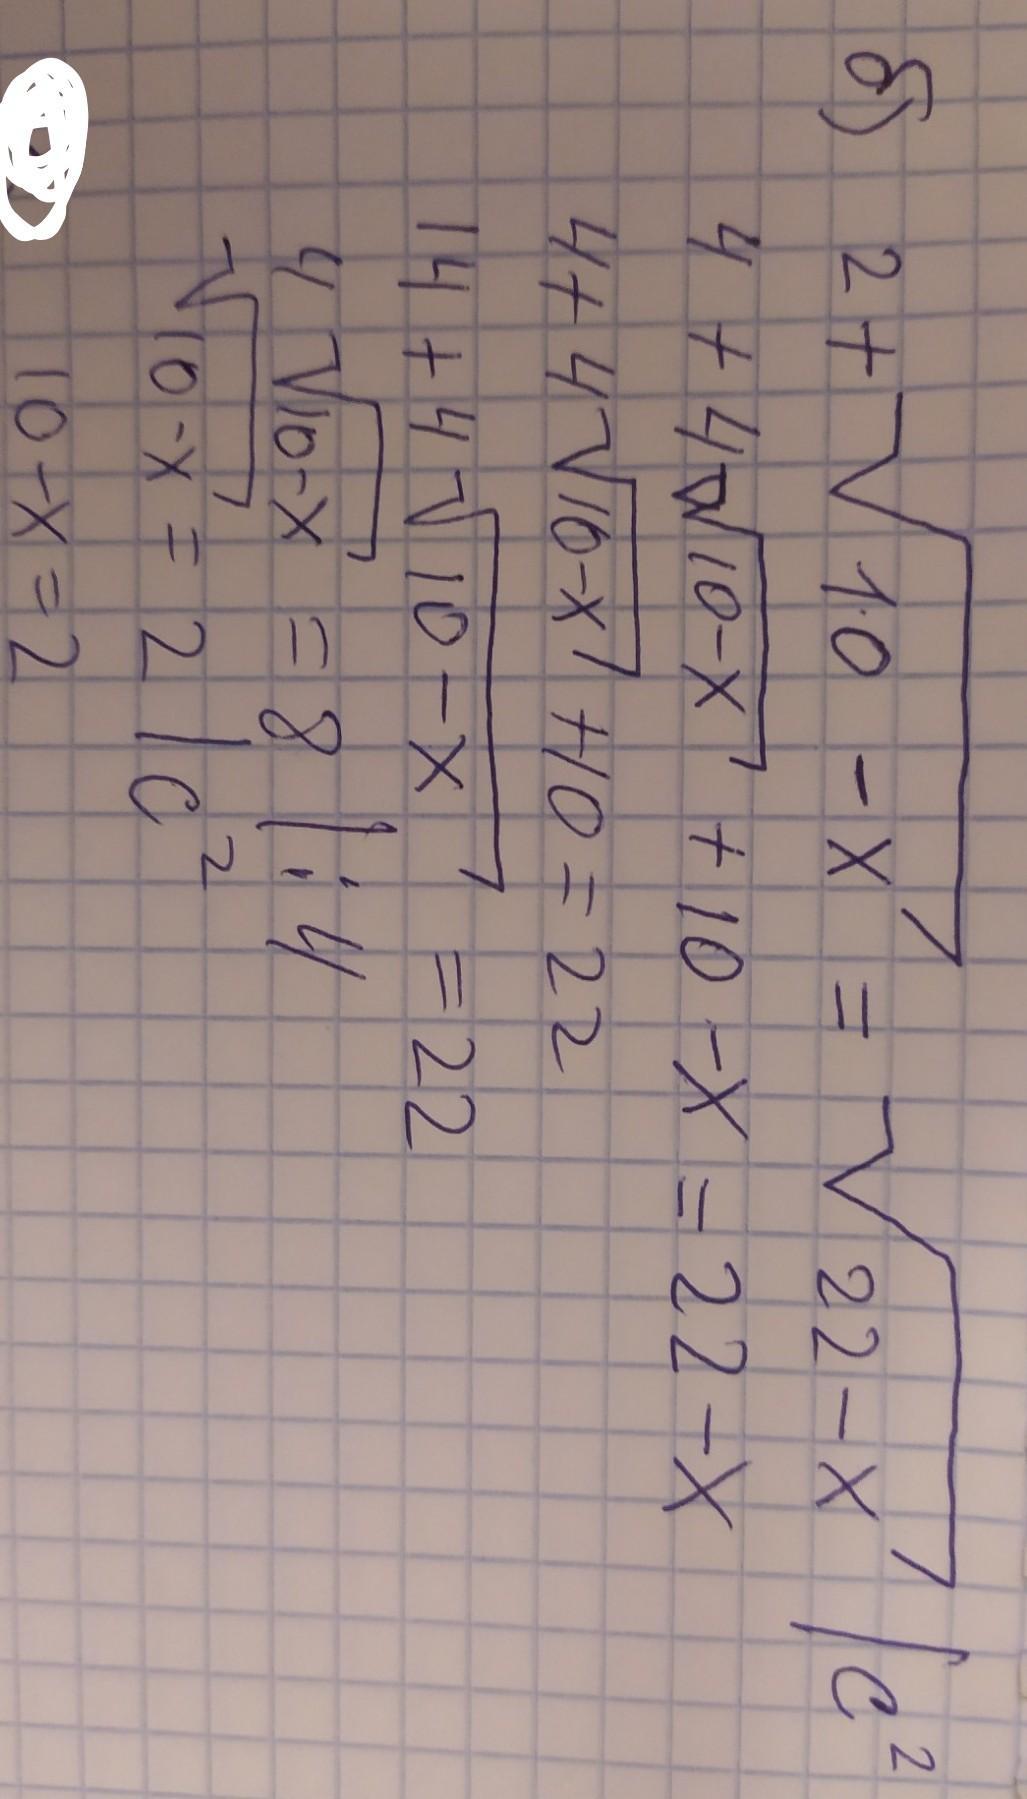 б) 2 + √10 - x = √22 - x | c²
4 + 4√10-x + 10 - x = 22 - x
4 + 4√10-x + 10 = 22
14 + 4√10 - x = 22
4√10-x = 8 | : 4
√10-x = 2 | c²
10 - x = 2